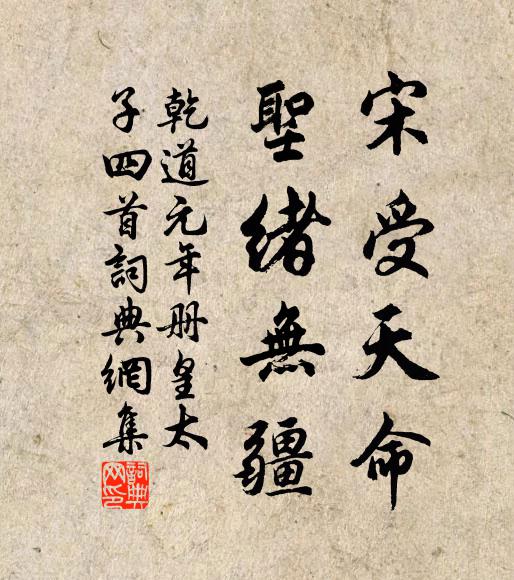 宋受天命
聖緒無疆
乾道元年册皇太
子四首詞典網集
詞典
网印